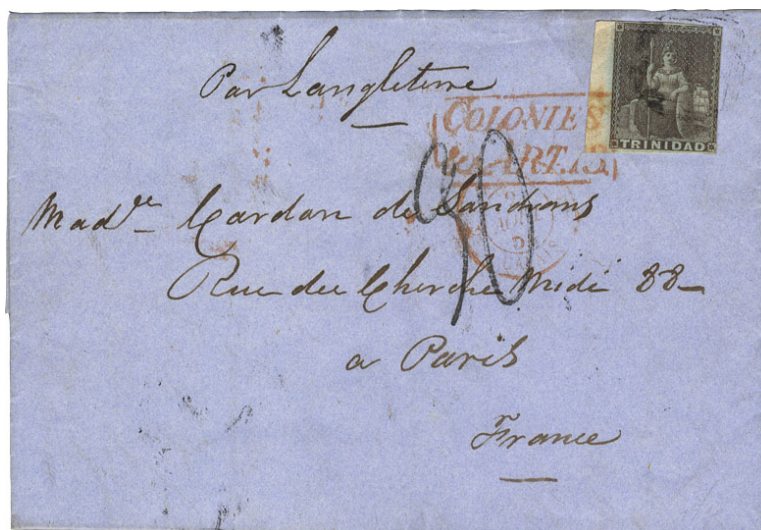 Par Langleterre
COLONIES
&c ART. 13.
TRINIDAD
30
Madme Cardon de Sandrans
Rue du Cherche Midi 88
a Paris
France